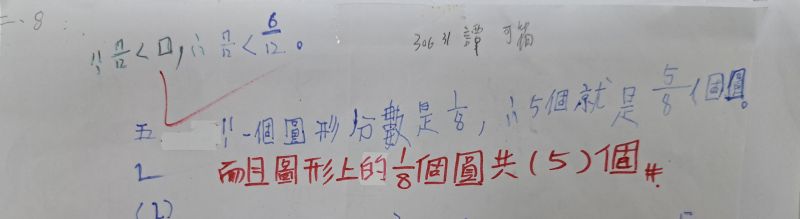 二、8：
∵ 11/12 < □，∴ 11/12 < 6/12。
30631 譚
五 ∵一個圖形分數是 1/8，∴5個就是 5/8 個圓。
2 而且圖形上的 1/8 個圓共(5)個#
(2)